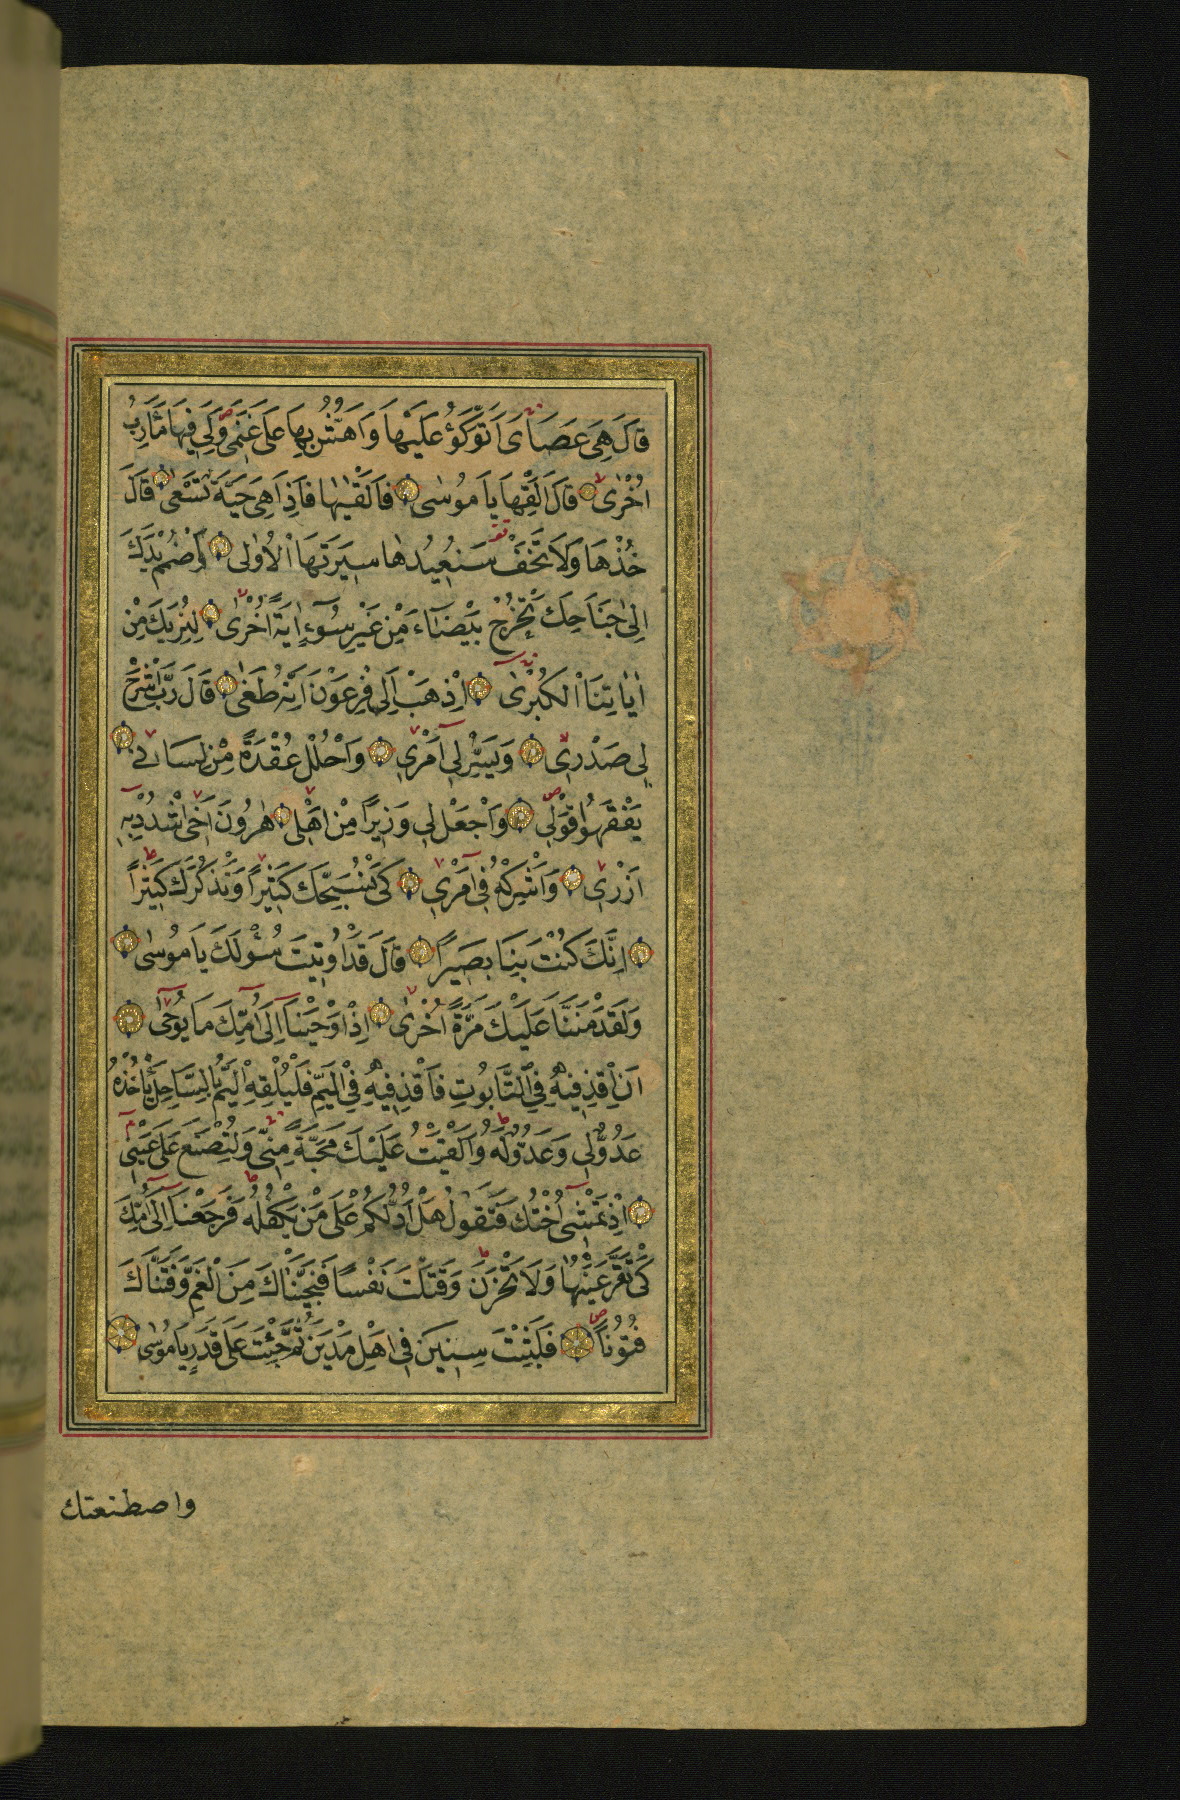 قَالَ هِيَ عَصَايَ اَتَوَكَّؤُ عَلَيْهَا وَاَهُشُّ بِهَا عَلَى غَنَمِي وَلِيَ فِيهَا مَاٰرِبُ
اُخْرٰى قَالَ اَلْقِهَا يَا مُوسٰى فَاَلْقٰيهَا فَاِذَا هِيَ حَيَّةٌ تَسْعٰى قَالَ
خُذْهَا وَلَا تَخَفْ سَنُعِيدُهَا سِيرَتَهَا الْاُولٰى وَاضْمُمْ يَدَكَ
اِلٰى جَنَاحِكَ تَخْرُجْ بَيْضَاءَ مِنْ غَيْرِ سُوءٍ اٰيَةً اُخْرٰى لِنُرِيَكَ مِنْ
اٰيَاتِنَا الْكُبْرٰى اِذْهَبْ اِلٰى فِرْعَوْنَ اِنَّهُ طَغٰى قَالَ رَبِّ اشْرَحْ
لِي صَدْرِي وَيَسِّرْ لِي اَمْرِي وَاحْلُلْ عُقْدَةً مِنْ لِسَانِي
يَفْقَهُوا قَوْلِي وَاجْعَلْ لِي وَزِيرًا مِنْ اَهْلِي هٰرُونَ اَخِي اشْدُدْ بِهِ
اَزْرِي وَاَشْرِكْهُ فِي اَمْرِي كَيْ نُسَبِّحَكَ كَثِيرًا وَنَذْكُرَكَ كَثِيرًا
اِنَّكَ كُنْتَ بِنَا بَصِيرًا قَالَ قَدْ اُوتِيتَ سُؤْلَكَ يَا مُوسٰى
وَلَقَدْ مَنَنَّا عَلَيْكَ مَرَّةً اُخْرٰى اِذْ اَوْحَيْنَا اِلٰى اُمِّكَ مَا يُوحٰى
اَنِ اقْذِفِيهِ فِي التَّابُوتِ فَاقْذِفِيهِ فِي الْيَمِّ فَلْيُلْقِهِ الْيَمُّ بِالسَّاحِلِ يَأْخُذْهُ
عَدُوٌّ لِي وَعَدُوٌّ لَهُ وَاَلْقَيْتُ عَلَيْكَ مَحَبَّةً مِنِّي وَلِتُصْنَعَ عَلٰى عَيْنِي
اِذْ تَمْشِي اُخْتُكَ فَتَقُولُ هَلْ اَدُلُّكُمْ عَلٰى مَنْ يَكْفُلُهُ فَرَجَعْنَاكَ اِلٰى اُمِّكَ
كَيْ تَقَرَّ عَيْنُهَا وَلَا تَحْزَنَ وَقَتَلْتَ نَفْسًا فَنَجَّيْنَاكَ مِنَ الْغَمِّ وَفَتَنَّاكَ
فُتُونًا فَلَبِثْتَ سِنِينَ فِي اَهْلِ مَدْيَنَ ثُمَّ جِئْتَ عَلٰى قَدَرٍ يَا مُوسٰى
واصطنعتك